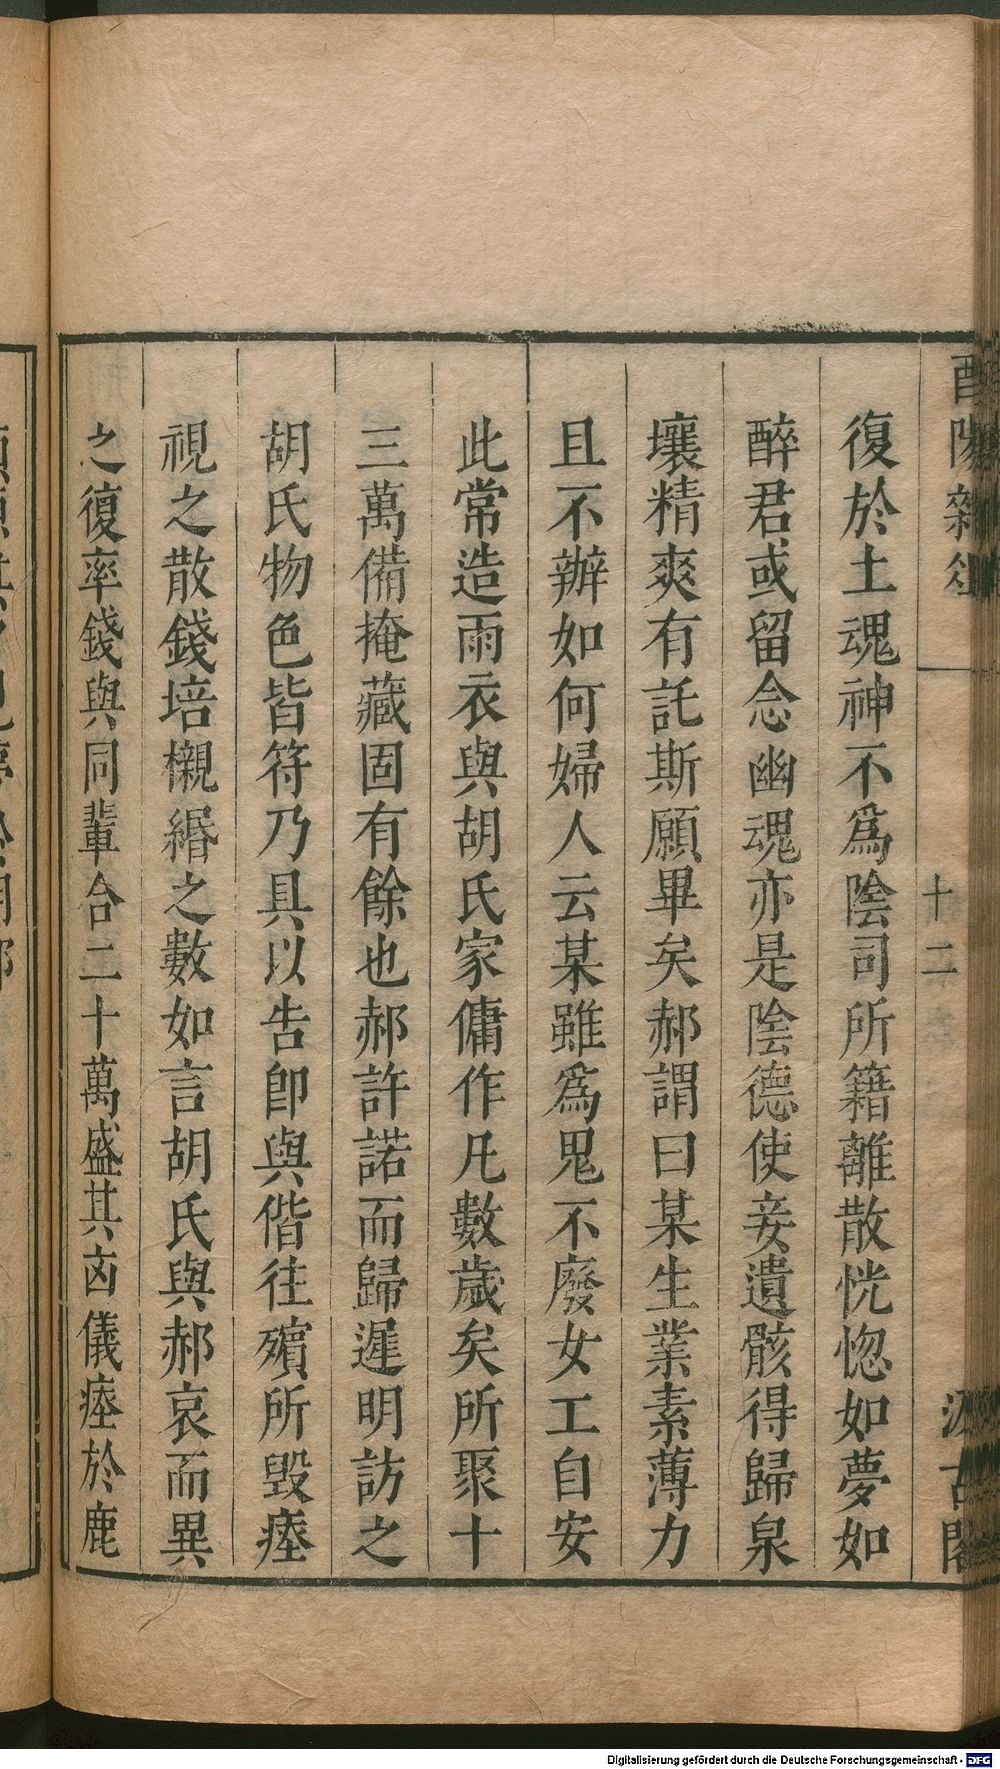 酉陽雜俎
十二
汲古閣
復於土魂神不爲陰司所籍離散恍惚如夢如
醉君或留念幽魂亦是陰德使妾遺骸得歸泉
壤精爽有託斯願畢矣郝謂曰某生業素薄力
且不辦如何婦人云某雖爲鬼不廢女工自安
此常造雨衣與胡氏家傭作凡數歲矣所聚十
三萬備掩藏固有餘也郝許諾而歸遲明訪之
胡氏物色皆符乃具以告卽與偕往殯所毀瘞
視之散錢培櫬緡之數如言胡氏與郝哀而異
之復率錢與同輩合二十萬盛其凶儀瘞於鹿
Digitalisierung gefördert durch die Deutsche Forschungsgemeinschaft - DFG